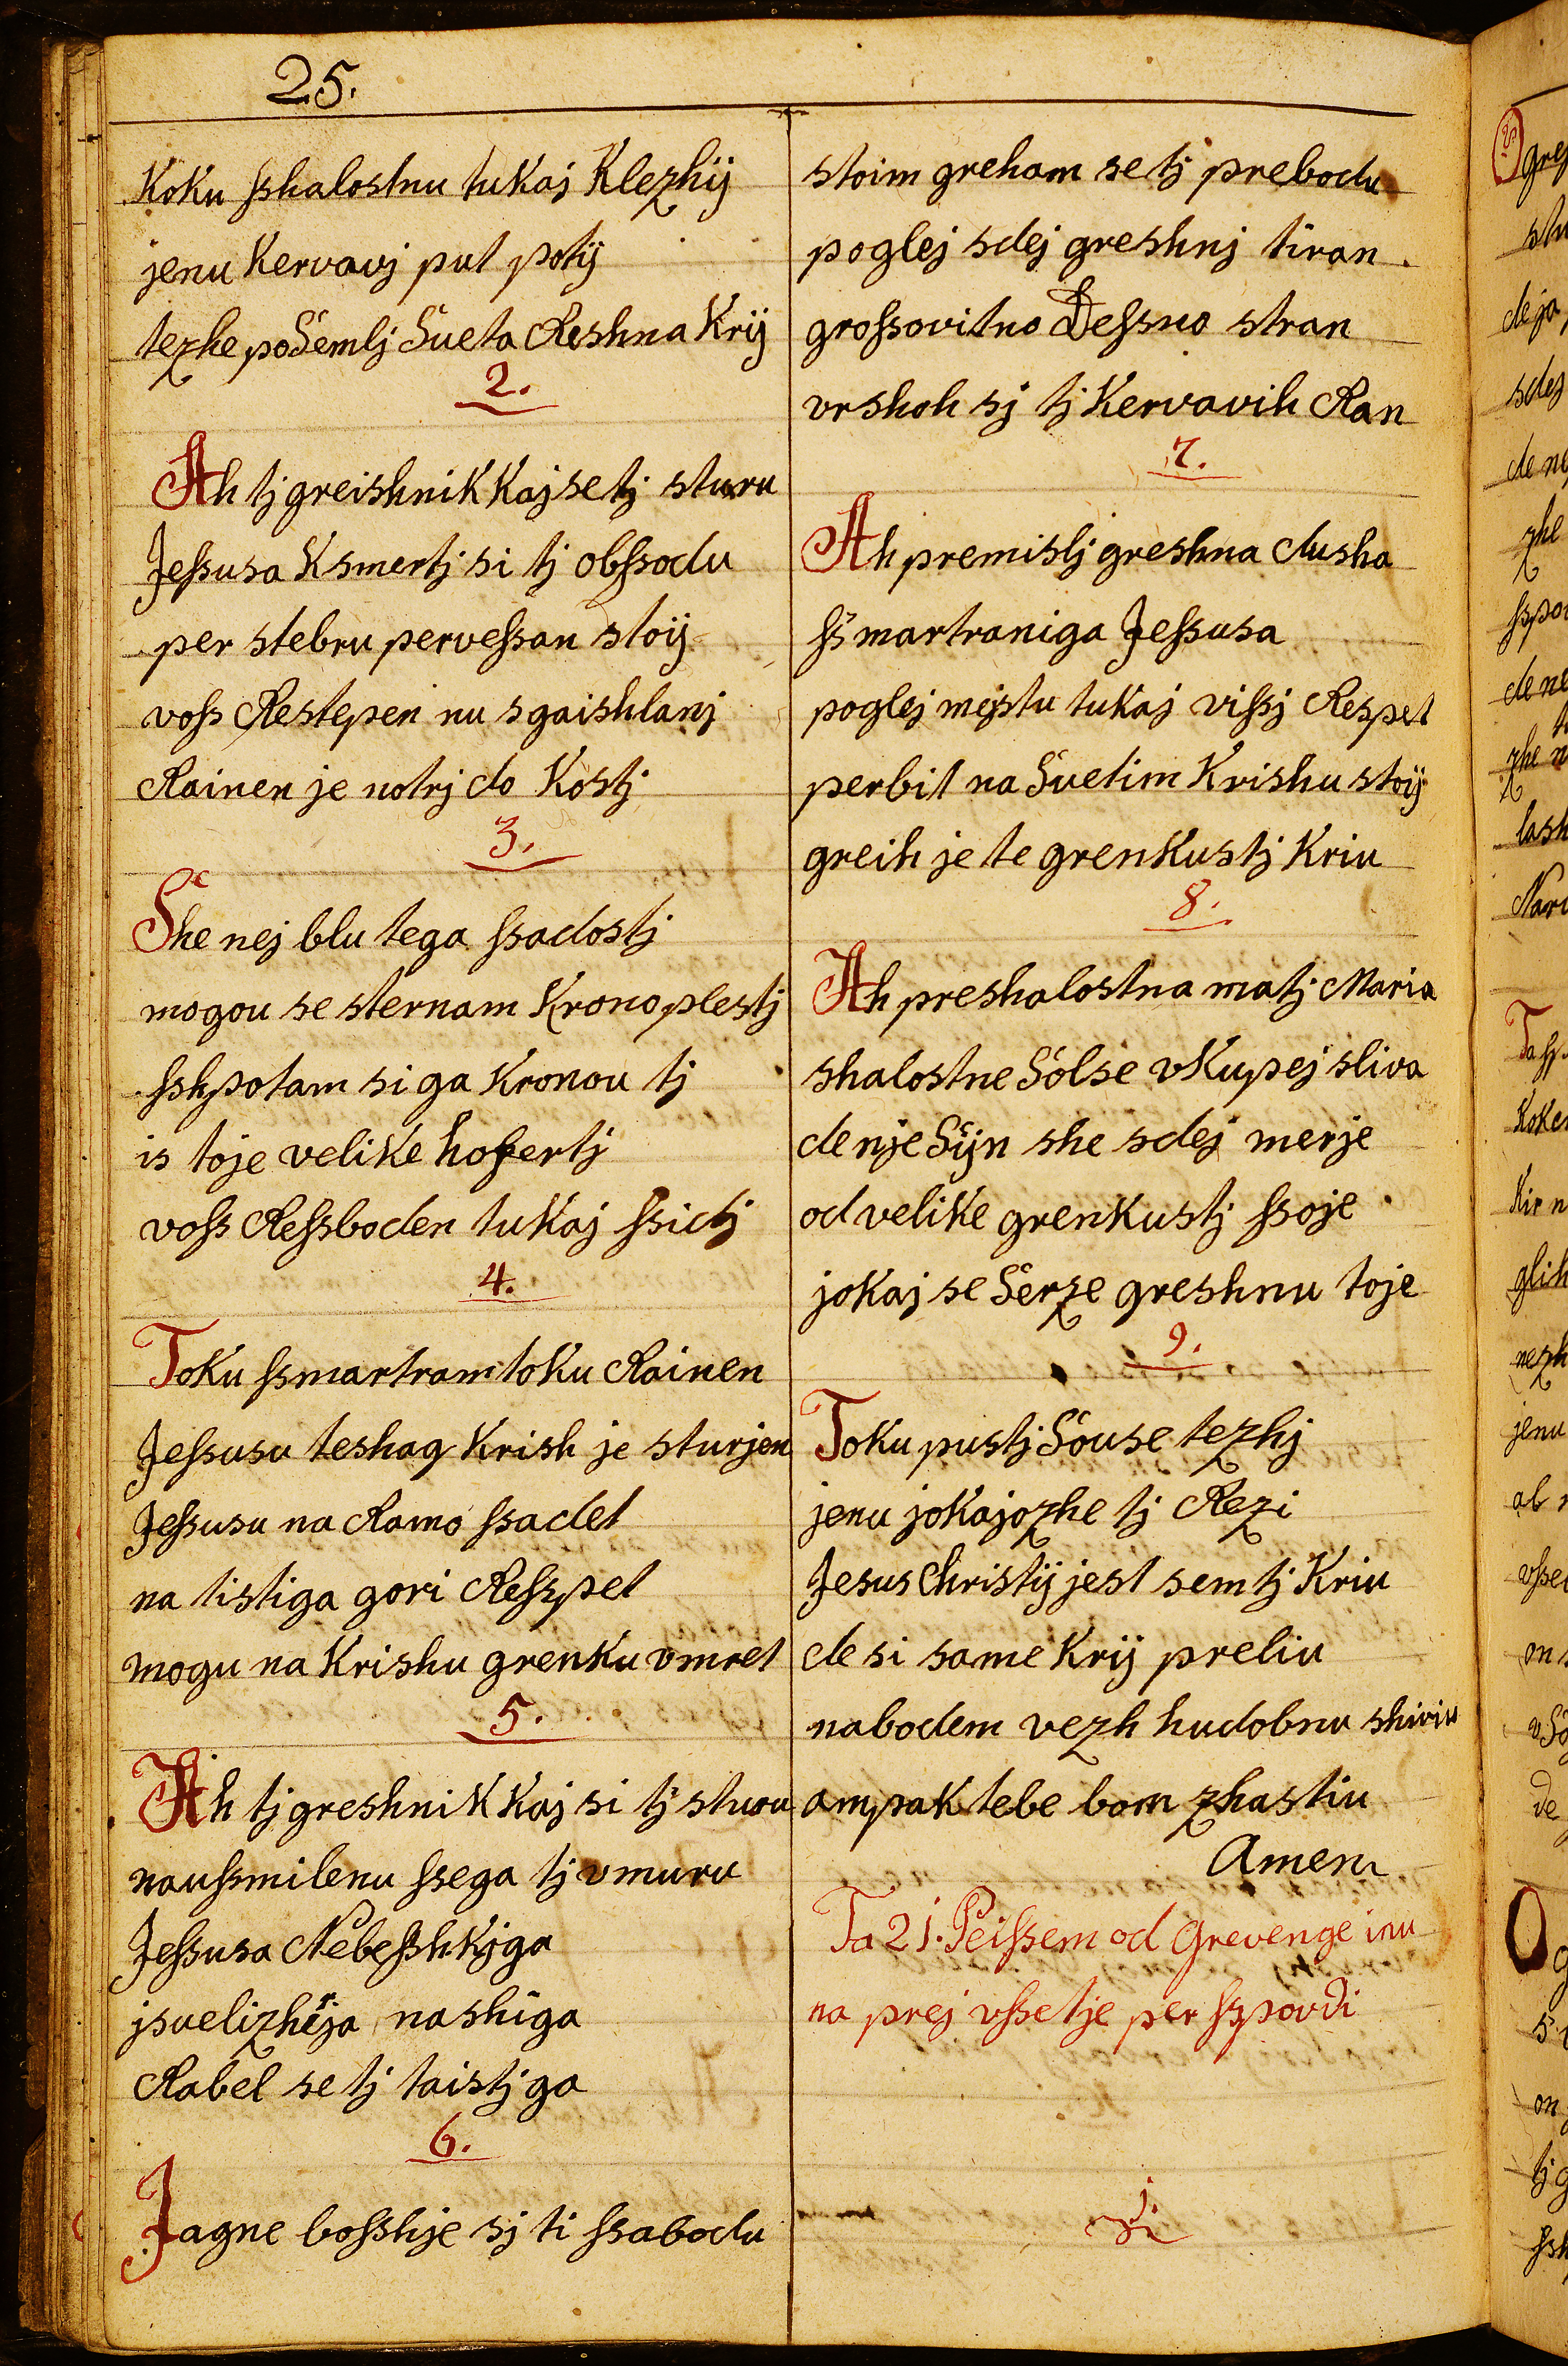 25.
Koku sshalostnu tukaj Klezhij
jenu Kervavj put potij
tezhe po Semlj Sueta Reshna Krij
2.
Ah tj greishnik Kaj se tj sturu
Jessusa K smertj si tj obssodu
per stebru pervessan stoij
voss Restepen nu sgaishlanj
Rainen je notrj do Kostj
3.
She nej blu tega ssadostj
mogou se sternam Krono plestj
sshpotam si ga Kronou tj
is toje velike hofertj
voss Ressboden tukaj ssidj
4.
Toku ssmartram toku Rainen
Jessusu teshag Krish je sturjen
Jessusu na Ramo ssadet
na tistiga gori Resspet
mogu na Krishu grenku vmret
5.
Ah tj greshnik Kaj si tj sturu
naussmilenu ssega tj vmuru
Jessusa Nebesshkjga
jsvelizherja nashiga
Rabel se tj taistj ga
6.
Jagne bosshje sj ti ssabodu
stoim greham se tj prebodu
poglej sdej greshnj tiran
grossovitno Dessno stran
vrshoh sj tj Kervavih Ran
7.
Ah premislj greshna dusha
ss martraniga Jessusa
poglej mejstu tukaj vissj Respet
perbit na Suetim Krishu stoij
greih je te grenkustj Kriu
8.
Ah preshalostna matj Maria
shalostne Solse vkupej sliva
de nje Sijn she sdej merje
od velike grenkustj ssoje
jokaj se Serze greshnu toje
9.
Toku pustj Souse tezhj
jenu jokajozhe tj Rezi
Jesus Christij jest sem tj Kriu
de si same Krij preliu
nabodem vezh hudobnu shiviu
ampak tebe bom zhastiu
Amen
Ta 21. Peissem od Grevenge inu
na prej vssetje per sspovdi